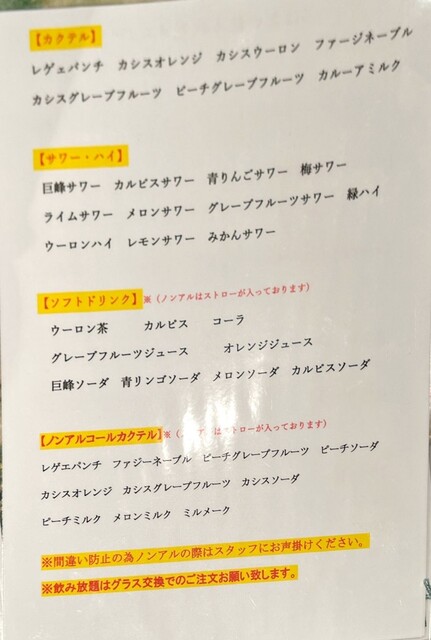 【カクテル】
レゲェパンチ カシスオレンジ カシスウーロン ファージネーブル
カシスグレープフルーツ ピーチグレープフルーツ カルーアミルク
【サワー・ハイ】
巨峰サワー カルピスサワー 青りんごサワー 梅サワー
ライムサワー メロンサワー グレープフルーツサワー 緑ハイ
ウーロンハイ レモンサワー みかんサワー
【ソフトドリンク】※（ノンアルはストローが入っております）
ウーロン茶 カルピス コーラ
グレープフルーツジュース オレンジジュース
巨峰ソーダ 青リンゴソーダ メロンソーダ カルピスソーダ
【ノンアルコールカクテル】※（ノンアルはストローが入っております）
レゲエパンチ ファジーネーブル ピーチグレープフルーツ ピーチソーダ
カシスオレンジ カシスグレープフルーツ カシスソーダ
ピーチミルク メロンミルク ミルメーク
※間違い防止の為ノンアルの際はスタッフにお声掛けください。
※飲み放題はグラス交換でのご注文お願い致します。